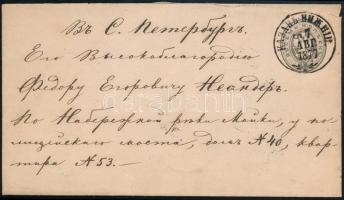 Въ С. Петербургъ.
Его Высокоблагородію
Федору Егоровичу Неандеръ.
По Набережной рѣки Мойки, у по-
лицейскаго моста, домъ №40, квар-
тира №53.—
КАЗАНЬ НИЖНІЙ
7
АВГ
1877
darabanth